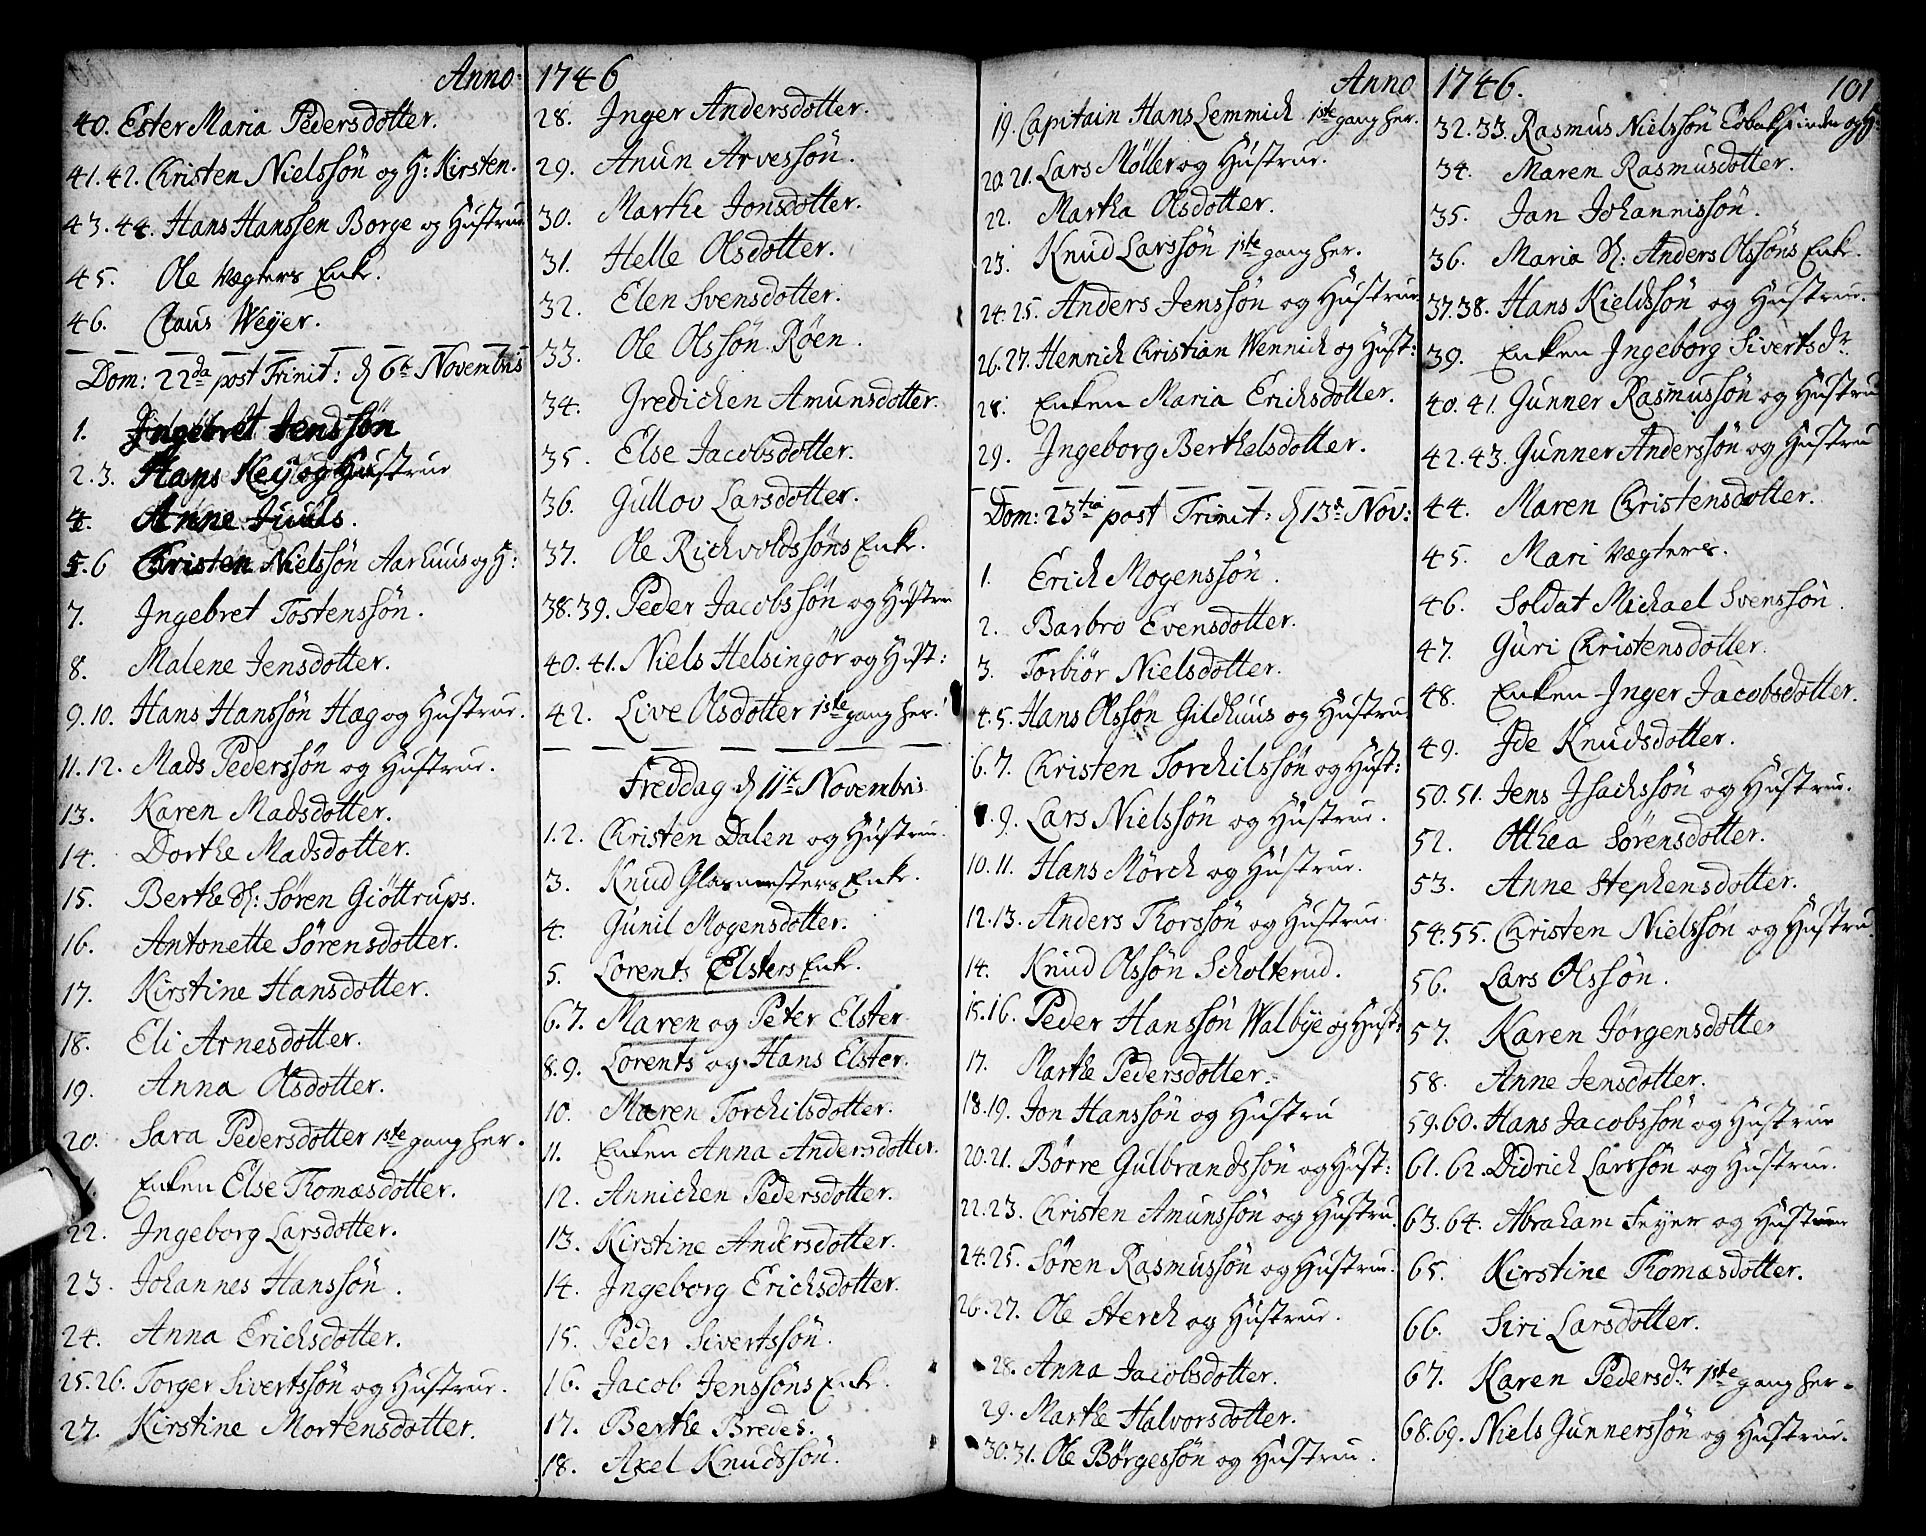 Anno 1746
40. Ester Maria Pedersdotter.
41.42. Christen Nielssön og H: Kirsten.
43.44. Hans Hanssen Borge og Hustrue
45. Ole Vægters Enke.
46. Claus Weyer.
Dom: 22da post Trinit: d 6te Novembris
1. Ingebret Jenssön
2.3. Hans Key og Hustrue
4. Anne Juuls.
5.6 Christen Nielssön Aarhuus og H:
7. Ingebret Tostenssön.
8. Malene Jensdotter.
9.10. Hans Hanssön Hæg og Hustrue.
11.12. Mads Pederssön og Hustrue.
13. Karen Madsdotter.
14. Dorthe Madsdotter.
15. Berthe Sl: Sören Giöttrups.
16. Antonette Sörensdotter.
17. Kirstine Hansdotter.
18. Eli Arnesdotter.
19. Anna Olsdotter.
20. Sara Pedersdotter 1ste gang her.
1. Enken Else Thomæsdotter.
22. Ingeborg Larsdotter.
23. Johannes Hanssön.
24. Anna Erichsdotter.
25.26. Torger Sivertssön og Hustrue.
27. Kirstine Mortensdotter.
28. Inger Andersdotter.
29. Anun Arvessön.
30. Marthe Jonsdotter.
31. Helle Olsdotter.
32. Elen Svensdotter.
33. Ole Olssön Röen.
34. Gredichen Amunsdotter.
35. Else Jacobsdotter.
36. Gullov Larsdotter.
37. Ole Richvoldssöns Enke.
38.39. Peder Jacobssön og Hustru
40.41. Niels Helsingör og Hust:
42. Live Olsdotter 1ste gang her.
Freddag d 11te Novembris
1.2. Christen Dalen og Hustrue.
3. Knud Glasmesters Enke.
4. Gunil Mogensdotter.
5. Lorents Elsters Enke.
6.7. Maren og Peter Elster
8.9. Lorents og Hans Elster.
10. Maren Torchilsdotter.
11. Enken Anna Andersdotter.
12. Annichen Pedersdotter.
13. Kirstine Andersdotter.
14. Ingeborg Erichsdotter.
15. Peder Sivertssön.
16. Jacob Jenssöns Enke.
17. Berthe Bredes.
18. Axel Knudssön.
Anno 1746. 101
19. Capitain Hans Lemmich 1ste gang her.
20.21. Lars Möller og Hustrue.
22. Martha Olsdotter.
23. Knud Larssön 1ste gang her.
24.25. Anders Jenssön og Hustrue
26.27. Henrich Christian Wennich og Hust:
28. Enken Maria Erichsdotter.
29. Ingeborg Berthelsdotter.
Dom: 23tia post Trinit: d 13de Nov:
1. Erich Mogenssön.
2. Barbro Evensdotter.
3. Torbiör Nielsdotter.
4.5. Hans Olssön Gildhuus og Hustru
6.7. Christen Torchilssön og Hust:
9. Lars Nielssön og Hustrue.
10.11. Hans Mörch og Hustrue.
12.13. Anders Thorssön og Hustrue.
14. Knud Olssön Scholterud.
15.16. Peder Hanssön Walbye og Hust
17. Marthe Pedersdotter.
18.19. Jon Hanssön og Hustru
20.21. Börre Gulbrandssön og Hust:
22.23. Christen Amunssön og Hustru.
24.25. Sören Rasmussön og Hustrue.
26.27. Ole Herch og Hustrue.
28. Anna Jacobsdotter.
29. Marthe Halvorsdotter.
30.31. Ole Börgessön og Hustrue.
32.33. Rasmus Nielssön og H:
34. Maren Rasmusdotter.
35. Jan Johannissön.
36. Maria Sl: Anders Olssöns Enke.
37.38. Hans Kieldssön og Hustrue.
39. Enken Ingeborg Sivertsdr.
40.41. Gunner Rasmussön og Hustru
42.43. Gunner Anderssön og Hustru
44. Maren Christensdotter.
45. Mari Vægters.
46. Soldat Michael Svenssön.
47. Guri Christensdotter.
48. Enken Inger Jacobsdotter.
49. Ide Knudsdotter.
50.51. Jens Isachssön og Hustrue.
52. Otthea Sörensdotter.
53. Anne Stephensdotter.
54.55. Christen Nielssön og Hustru.
56. Lars Olssön.
57. Karen Jörgensdotter
58. Anne Jensdotter.
59.60. Hans Jacobssön og Hustrue
61.62 Didrich Larssön og Hustrue.
63.64. Abraham Feyer og Hustrue
65. Kirstine Thomæsdotter.
66. Siri Larsdotter.
67. Karen Pedersdr. 1ste gang her.
68.69. Niels Gunnerssön og Hustrue.